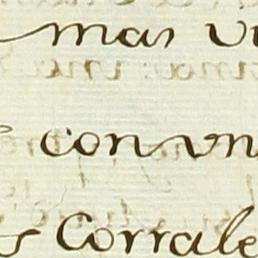 mas
con un
Corrale